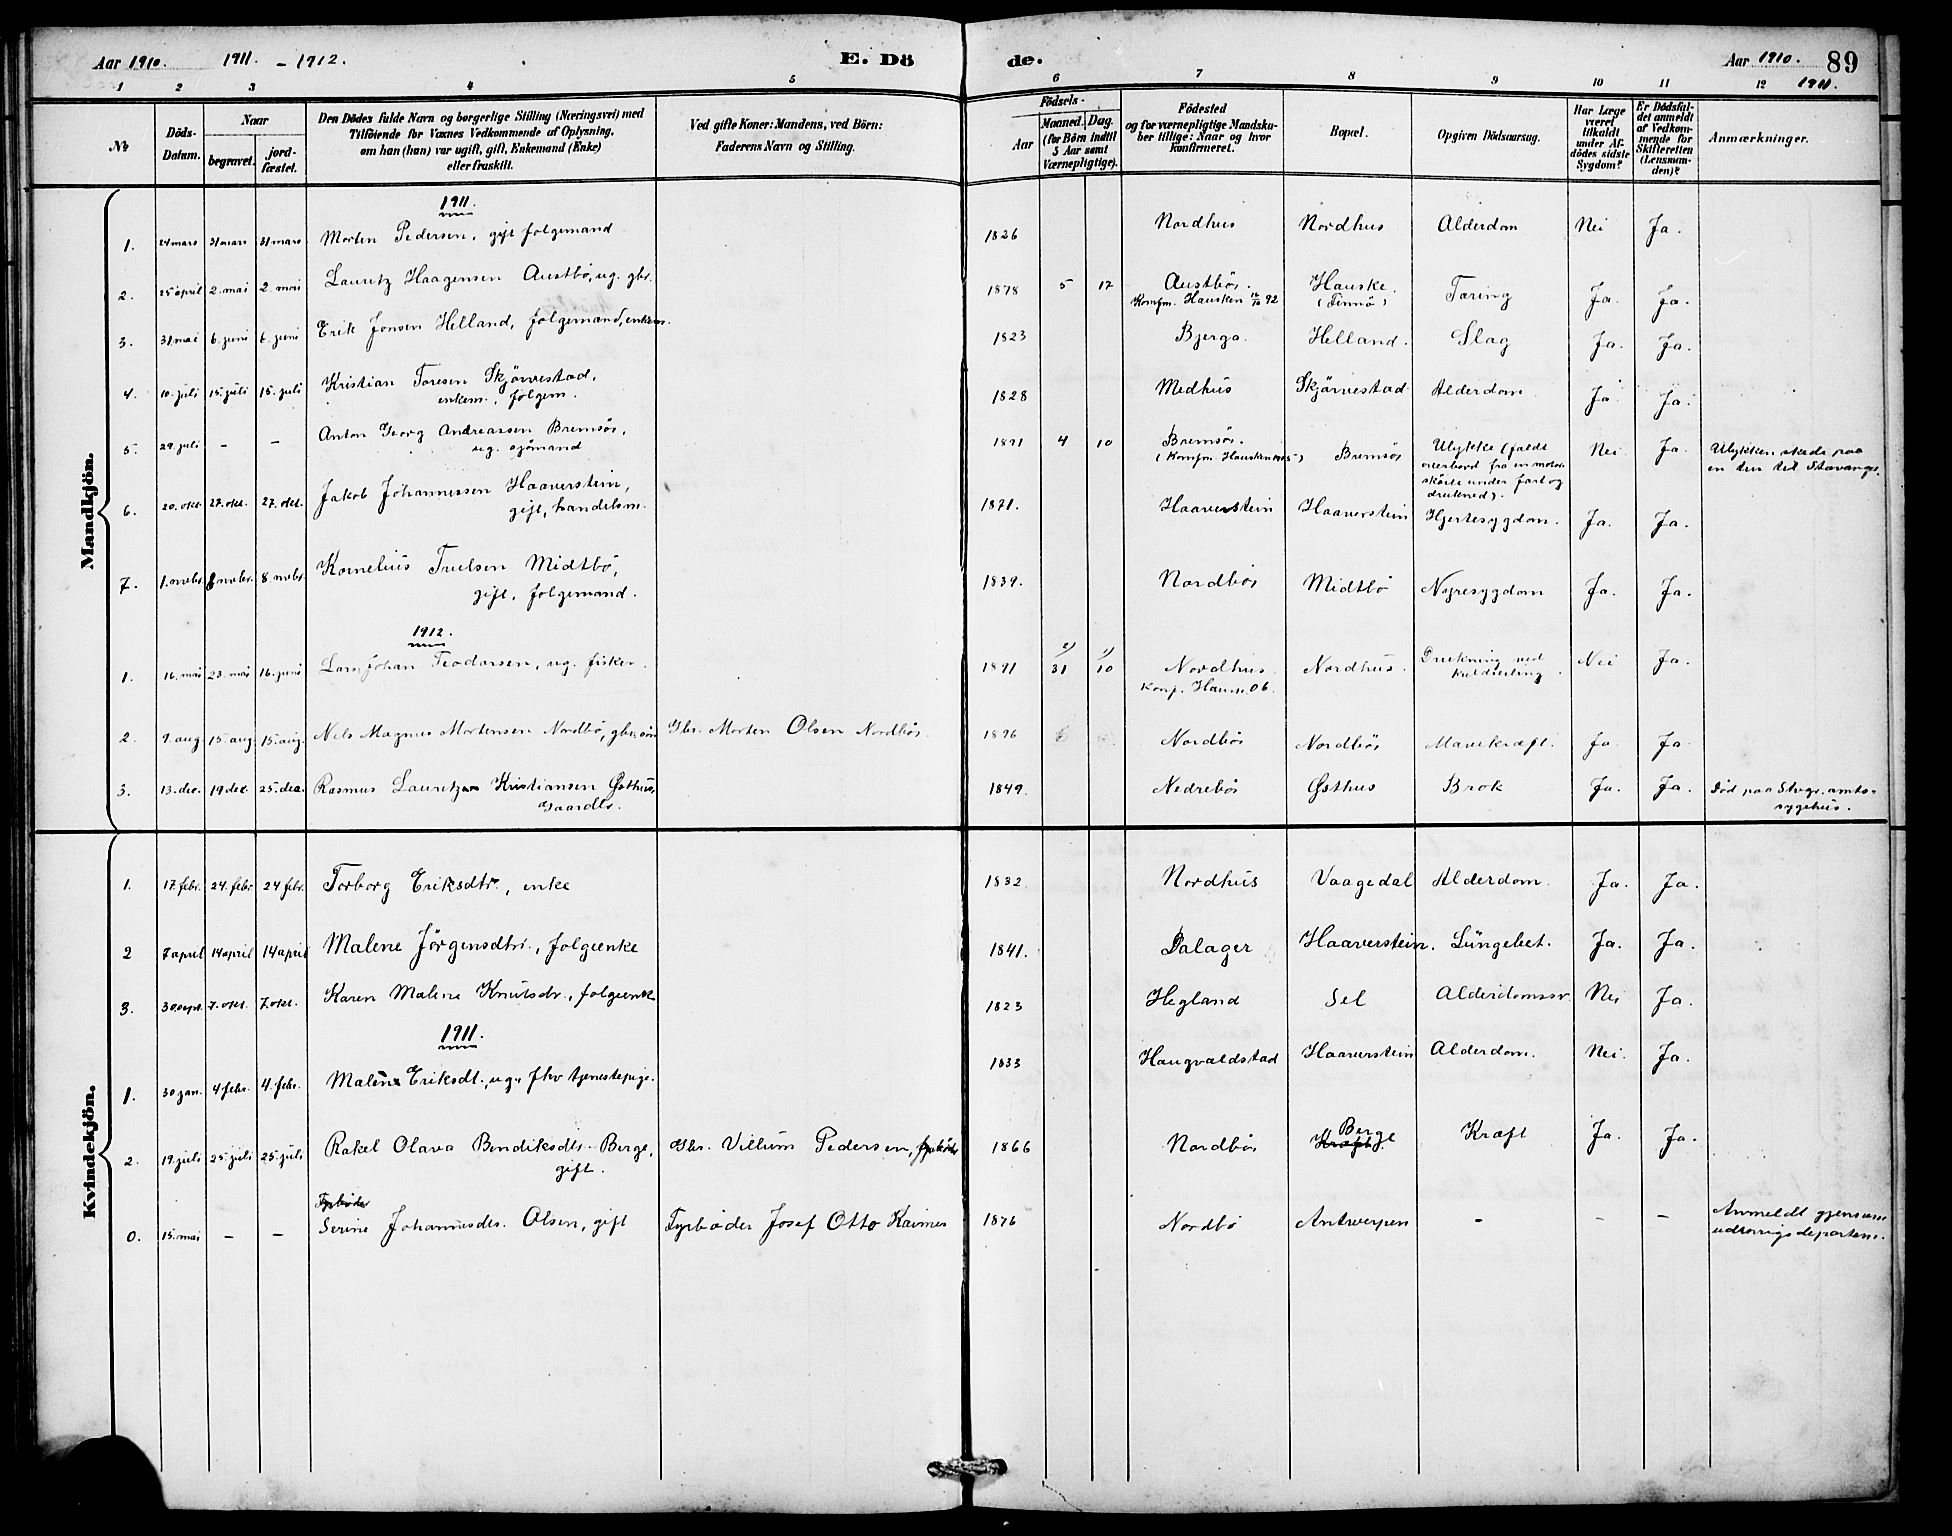 Aar 1910. 1911. - 1912.
E. Dö
de.
Aar 1910. 89
1911.
1 2 3 4 5 6 7 8 9 10 11 12
No
Döds-Datum.
Naar
begravet.
jord-fæstet.
Den Dödes fulde Navn og borgerlige Stilling (Næringsvei) med
Tilföiende for Voxnes Vedkommende af Oplysning,
om han (hun) var ugift, gift, Enkemand (Enke)
eller fraskilt.
Ved gifte Koner: Mandens, ved Börn:
Faderens Navn og Stilling.
Födsels-
Aar
Maaned. Dag.
(for Börn indtil
5 Aar samt
Værnepligtige).
Födested
og for værnepligtige Mandska-
ber tillige: Naar og hvor
konfirmeret.
Bopæl.
Opgiven Dödsaarsag.
Har Læge
været
tilkaldt
under Af-
dödes sidste
Sygdom?
Er Dödsfal-
det anmeldt
af Vedkom-
mende for
Skifteretten
(Lensman-
den)?
Anmærkninger.
Mandkjön.
1911.
1. 24 mars 31 mars 31 mars Morten Pedersen, gift folgemand 1826 Nordhus Nordhus Alderdom Nei Ja.
2. 25 april 2. mai 2. mai Lauritz Haagensen Austbö, ug. gbr. 1878 5 17 Austbö. Hauske. Tæring Ja. Ja.
Komfm. Hausken 92 (Finnö)
3. 31. mai 6. juni 6. juni Erik Jonsen Helland, folgemand, enkem. 1823 Bjerga. Helland. Slag Ja. Ja.
4. 10. juli 15. juli 15. juli Kristian Toresen Skjörvestad, 1828 Medhus Skjörvestad Alderdom Ja. Ja.
enkem., folgem.
5. 29. juli - - Anton Georg Andreassen Bremsös, 1891 4 10 Bremsös. Bremsös Ulykke (faldt Nei Ja. Ulykken skede paa
ug. sjömand (Komfm. Hausken 1905) overbord fra en motor- en tur til Stavanger.
sköite under fart og
drukned).
6. 20. okt. 27. okt. 27. okt. Jakob Johannessen Haaverstein, 1871. Haaverstein Haaverstein Hjertesygdom. Ja. Ja.
gift, handelsm.
7. 1. novbr. 8 novbr. 8 novbr. Kornelius Truelsen Midtbö, 1839. Nordbös Midtbö Nyresygdom Ja. Ja.
gift, folgemand.
1912.
1. 16. mai 23. mai 16. juni Lars Johan Teodorsen, ug. fisker. 1891 31 10 Nordhus. Nordhus. Drukning ved Nei Ja.
Konf. Hausk. 06. kuldseiling.
2. 9. aug 15. aug. 15. aug. Nils Magnus Mortensen Nordbö, gbr. sön Gbr. Morten Olsen Nordbös. 1896 Nordbös Nordbös Mavekræft. Ja. Ja.
3. 13. dec. 19 dec. 25. dec. Rasmus Lauritzen Kristiansen Østhus, 1849. Nedrebös Østhus Brok Ja. Ja. Död paa Stvgr. amts-
Gaardbr. sygehus.
Kvindekjön.
1. 17. febr. 24. febr 24 febr. Torborg Eriksdtr., enke 1832 Nordhus Vaagedal Alderdom. Ja. Ja.
2 7 april 14 april 14 april Malene Jörgensdtr., folgeenke 1841. Dalager Haaverstein. Lungebet. Ja. Ja.
3. 30. sept. 7. okt. 7. okt. Karen Malene Knutsdtr., folgeenke 1823 Hegland Sel Alderdomssv. Nei Ja.
1911.
1. 30 jan. 4 febr. 4. febr. Malene Eriksdt., ug., fhv tjenestepige. 1833 Haugvaldstad Haaverstein Alderdom. Nei. Ja.
2. 19. juli 25. juli 25. juli Rakel Olava Bendiksdtr. Berge, Gbr. Villum Pedersen, 1866 Nordbös Kræft. Berge Kræft Ja. Ja.
gift.
Fyrböder
0. 15. mai - - Serine Johannesdtr. Olsen, gift Fyrböder Josef Otto 1876 Nordbö Antwerpen - - - Anmeldt gjennem
udenrigsdepartem.